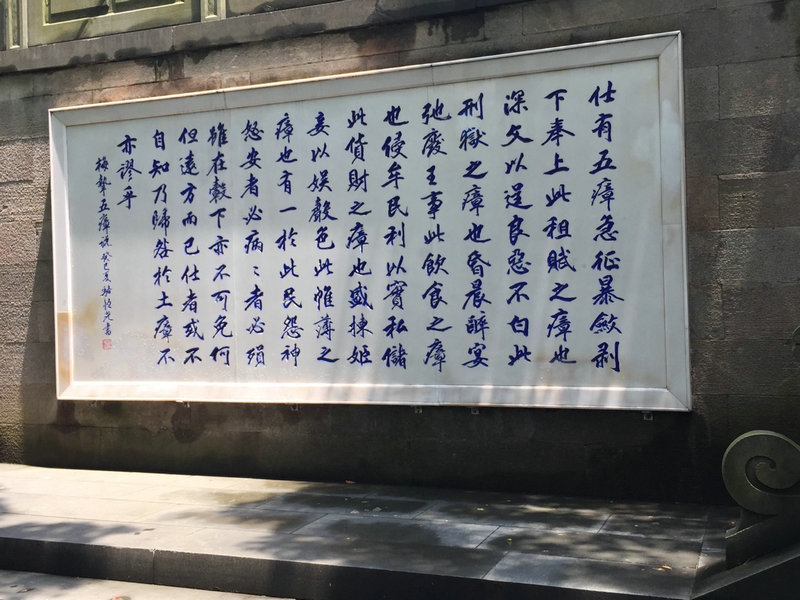 仕有五瘴急征暴斂剥
下奉上此租賦之瘴也
深文以逞良惡不白此
刑獄之瘴也昏晨醉宴
弛廢王事此飲食之瘴
也侵牟民利以實私儲
此貨財之瘴也盛揀姬
妾以娛聲色此帷薄之
瘴也有一於此民怨神
怒安者必病〻者必殞
雖在轂下亦不可免何
但遠方而已仕者或不
自知乃歸咎於土瘴不
亦謬乎
梅摯五瘴說 癸巳夏 書